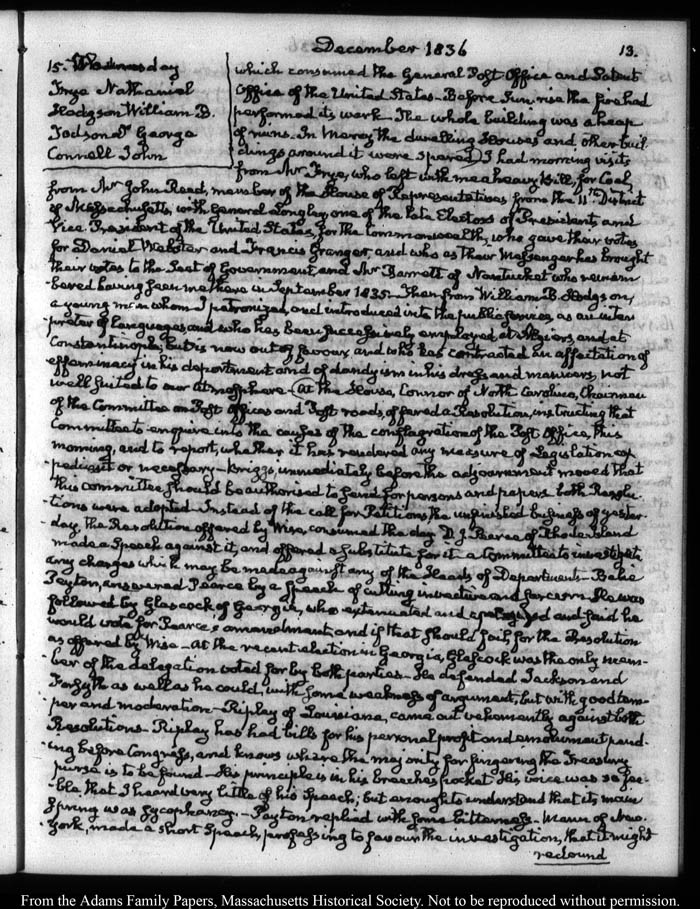 December 1836
13.
15. Thursday
Frye Nathaniel
Hodgson William B.
Todson Dr. George
Connell John
which consumed the General Post Office and Patent
Office of the United States. Before Sun rise the fire had
performed its work. The whole building was a heap
of ruins. In Mercy the dwelling Houses and other buil-
dings around it were spared. I had morning visits
from Mr Frye, who left with me a heavy Bill, for Coal,
from Mr John Reed, member of the House of Representatives from the 11th District
of Massachusetts, with General Longley, one of the late Electors of President, and
Vice President of the United States, for the Commonwealth, who gave their votes
for Daniel Webster and Francis Granger, and who as their Messenger has brought
their votes to the Seat of Government, and Mr Barrett of Nantucket who remem-
bered having seen me there in September 1835. Then from William B. Hodgson,
a young man whom I patronized, and introduced into the public service, as an inter-
preter of languages, and who has been successively employed, at Algiers, and at
Constantinople, but is now out of favour, and who has contracted an affectation of
effeminacy in his deportment and of dandyism in his dress and manners, not
well suited to our atmosphere. At the House, Connor of North Carolina, Chairman
of the Committee on Post Offices and Post roads, offered a Resolution, instructing that
Committee to enquire into the causes of the conflagration of the Post Office, this
morning, and to report, whether it has rendered any measure of Legislation ex-
pedient or necessary. Briggs, immediately before the adjournment moved that
this committee should be authorised to send for persons and papers both Resolu-
tions were adopted. Instead of the call for Petitions, the unfinished business of yester-
day, the Resolution offered by Wise, consumed the day. D. J. Pearce of Rhode Island
made a Speech against it, and offered a Substitute for it a Committee to investigate
any charges which may be made against any of the Heads of Department. Balie
Peyton, answered Pearce by a Speech of cutting invective and sarcasm. He was
followed by Glascock of Georgia, who extenuated and apologized and said he
would vote for Pearce's amendment, and if that should fail, for the Resolution
as offered by Wise. At the recent election in Georgia, Glascock was the only mem-
ber of the delegation voted for by both parties. He defended Jackson and
Forsyth as well as he could, with some weakness of argument, but with good tem-
per and moderation. Ripley of Louisiana, came out vehemently against both
Resolutions. Ripley has had bills for his personal profit and emolument pend-
ing before Congress, and knows where the majority for fingering the Treasury
purse is to be found. His principle is in his breeches pocket. His voice was so fee-
ble, that I heard very little of his Speech; but enough to understand that its main
Spring was sycophancy. Peyton replied with some bitterness. Mann of New-
York, made a short Speech, professing to favour the investigation, that it might
redound
From the Adams Family Papers, Massachusetts Historical Society. Not to be reproduced without permission.